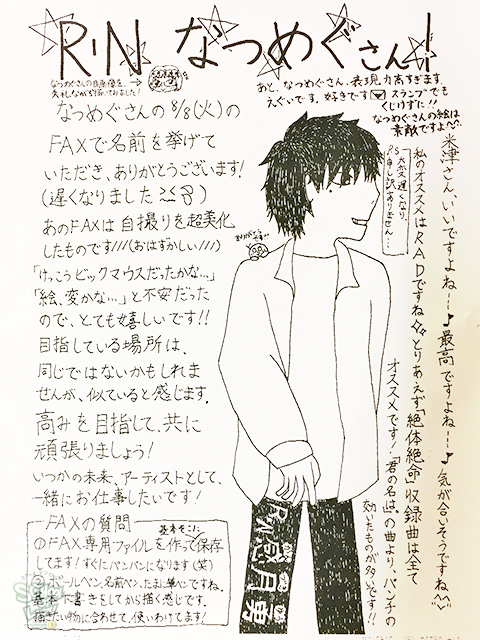 RIN なつめぐさん!
なつめぐさんの自画像を、
失礼ながら描いてみました!
なつめぐさんの8/8(火)の
FAXで名前を挙げて
いただき、ありがとうございます!
(遅くなりました
あのFAXは自撮りを超美化
したものです///(おはずかしい///)
「けっこうビックマウスだったかな…」
「絵、変かな…」と不安だった
ので、とても嬉しいです!!
目指している場所は、
同じではないかもしれま
せんが、似ていると感じます。
高みを目指して、共に
頑張りましょう!
いつかの未来、アーティストとして、
一緒にお仕事したいです!
FAXの質問
基本そこに
①FAX専用ファイルを作って保存
してます!すぐにパンパンになります(笑)
②ボールペン、名前ペン、たまに筆ペンですね。
基本下書きをしてから描く感じです。
描きたい物に合わせて、使いわけてます!
あと、なつめぐさん、表現力高すぎます。
えぐいです。好きです スタンプでも
くじけずに!!
なつめぐさんの絵は
素敵ですよ〜
米津さん、いいですよねー!♪最高ですよねー!♪気が合いそうですね
私のオススメはRADですね とりあえず「絶体絶命」収録曲は全て
オススメです!「君の名は。」の曲より、パンチの
効いたものが多いです!!
P.S.
大変遅くなり、
申し訳ありません…
RIN